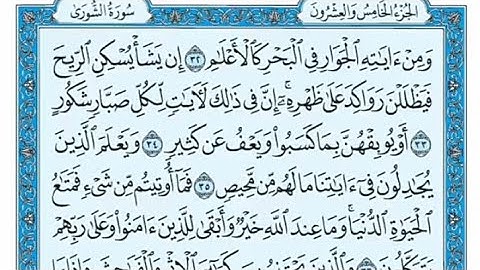 الجزء الخامس والعشرون سورة الشورى
وَمِنْ ءَايَٰتِهِ ٱلْجَوَارِ فِى ٱلْبَحْرِ كَٱلْأَعْلَٰمِ ٣٢ إِن يَشَأْ يُسْكِنِ ٱلرِّيحَ
فَيَظْلَلْنَ رَوَاكِدَ عَلَىٰ ظَهْرِهِۦٓ ۚ إِنَّ فِى ذَٰلِكَ لَءَايَٰتٍ لِّكُلِّ صَبَّارٍ شَكُورٍ
٣٣ أَوْ يُوبِقْهُنَّ بِمَا كَسَبُوا۟ وَيَعْفُ عَن كَثِيرٍ ٣٤ وَيَعْلَمَ ٱلَّذِينَ
يُجَٰدِلُونَ فِىٓ ءَايَٰتِنَا مَا لَهُم مِّن مَّحِيصٍ ٣٥ فَمَآ أُوتِيتُم مِّن شَىْءٍ فَمَتَٰعُ
ٱلْحَيَوٰةِ ٱلدُّنْيَا ۖ وَمَا عِندَ ٱللَّهِ خَيْرٌ وَأَبْقَىٰ لِلَّذِينَ ءَامَنُوا۟ وَعَلَىٰ رَبِّهِمْ
يَتَوَكَّلُونَ ٣٦ وَٱلَّذِينَ يَجْتَنِبُونَ كَبَٰٓئِرَ ٱلْإِثْمِ وَٱلْفَوَٰحِشَ وَإِذَا مَا